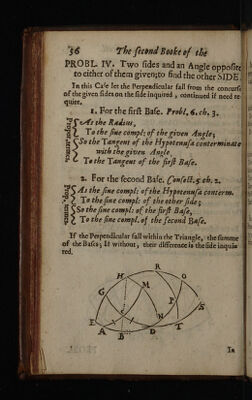 56 The second Booke of the
PROBL. IV. Two sides and an Angle opposite
to either of them given; to find the other SIDE.
In this Case let the Perpendicular fall from the concurse
of the given sides on the side inquired, continued if need re-
quire.
1. For the first Base. Probl. 6. ch. 3.
As the Radius,
To the sine compl: of the given Angle;
So the Tangent of the Hypotenusa conterminate
with the given Angle
To the Tangent of the first Base.
2. For the second Base. Consect. 5. ch. 2.
As the sine compl: of the Hypotenusa conterm.
To the sine compl: of the other side;
So the sine compl: of the first Base,
To the sine compl. of the second Base.
If the Perpendicular fall within the Triangle, the summe
of the Bases; If without, their difference is the side inqui-
red.
R
H
O
M
G
P
S
C
E
N
D
T
A
B
In